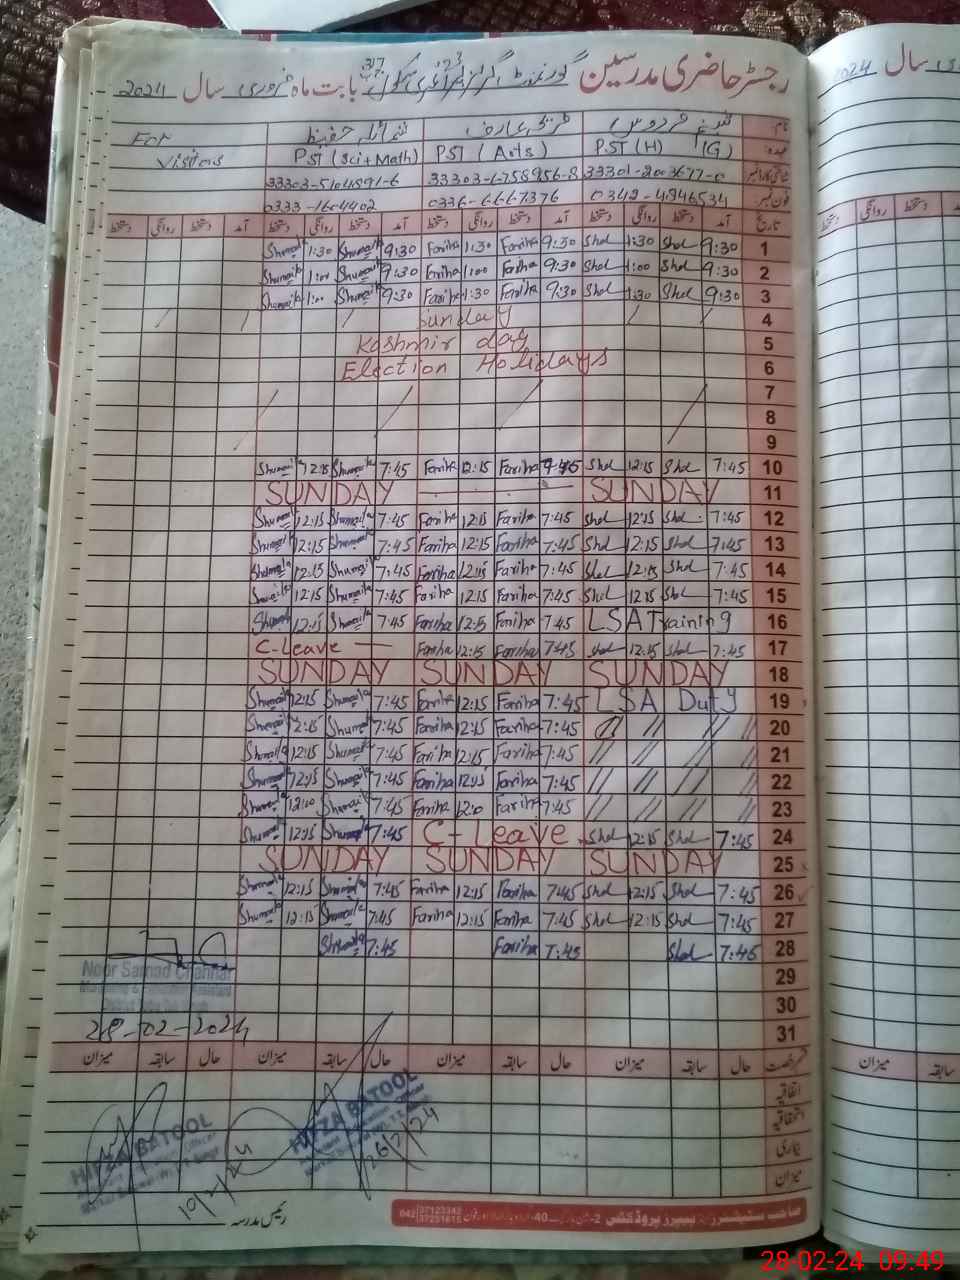 رجسٹر حاضری مدرسین گورنمنٹ گرلز پرائمری سکول 317 بابت ماہ فروری سال 2024
2024 سال
نام شمائلہ حفیظ For
عہدہ PST (H) (G) PST (Arts) PST (Sci+Math) Visitors
33301-2003677-0 33303-6758956-8 33303-5104891-6
فون نمبر 0342-4946534 0336-6667376 0333-1604402
تاریخ آمد دستخط روانگی دستخط آمد دستخط روانگی دستخط آمد دستخط روانگی دستخط آمد دستخط روانگی دستخط
1 9:30 Shd 1:30 Shd 9:30 Fariha 1:30 Fariha 9:30 Shumaila 1:30 Shumaila
2 9:30 Shd 1:00 Shd 9:30 Fariha 1:00 Fariha 9:30 Shumaila 1:00 Shumaila
3 9:30 Shd 1:30 Shd 9:30 Fariha 1:30 Fariha 9:30 Shumaila 1:00 Shumaila
4 Sunday
5 Kashmir day
6 Election Holidays
7
8
9
10 7:45 Shd 12:15 Shd 7:45 Fariha 12:15 Fariha 7:45 Shumaila 12:15 Shumaila
11 SUNDAY SUNDAY
12 7:45 Shd 12:15 Shd 7:45 Fariha 12:15 Fariha 7:45 Shumaila 12:15 Shumaila
13 7:45 Shd 12:15 Shd 7:45 Fariha 12:15 Fariha 7:45 Shumaila 12:15 Shumaila
14 7:45 Shd 12:15 Shd 7:45 Fariha 12:15 Fariha 7:45 Shumaila 12:15 Shumaila
15 7:45 Shd 12:15 Shd 7:45 Fariha 12:15 Fariha 7:45 Shumaila 12:15 Shumaila
16 LSA Training 7:45 Fariha 12:15 Fariha 7:45 Shumaila 12:15 Shumaila
17 7:45 Shd 12:15 Shd 7:45 Fariha 12:15 Fariha C-Leave
18 SUNDAY SUNDAY SUNDAY
19 LSA Duty 7:45 Fariha 12:15 Fariha 7:45 Shumaila 12:15 Shumaila
20 7:45 Fariha 12:15 Fariha 7:45 Shumaila 12:15 Shumaila
21 7:45 Fariha 12:15 Fariha 7:45 Shumaila 12:15 Shumaila
22 7:45 Fariha 12:15 Fariha 7:45 Shumaila 12:15 Shumaila
23 7:45 Fariha 12:0 Fariha 7:45 Shumaila 12:00 Shumaila
24 7:45 Shd 12:15 Shd C-Leave 7:45 Shumaila 12:15 Shumaila
25 SUNDAY SUNDAY SUNDAY
26 7:45 Shd 12:15 Shd 7:45 Fariha 12:15 Fariha 7:45 Shumaila 12:15 Shumaila
27 7:45 Shd 12:15 Shd 7:45 Fariha 12:15 Fariha 7:45 Shumaila 12:15 Shumaila
28 7:45 Shd 7:45 Fariha 7:45 Shumaila
29 Noor Samad Channar
30
31 28-02-2024
رخصت حال سابقہ میزان حال سابقہ میزان حال سابقہ میزان حال سابقہ میزان
اتفاقیہ
استحقاقیہ
بیماری
میزان
HIFZA BATOOL
26/2/24
HIFZA BATOOL
10/2/24
رئیس مدرسہ
042 37123342 37231615
28-02-24 09:49